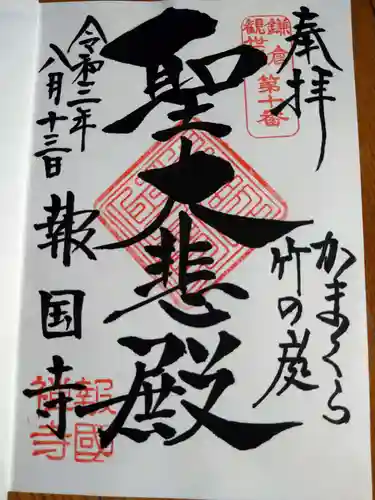 奉拝
かまくら
竹の庭
鎌倉
観世音
第十番
聖大悲殿
令和二年
八月十三日
報国寺
報國
禅寺